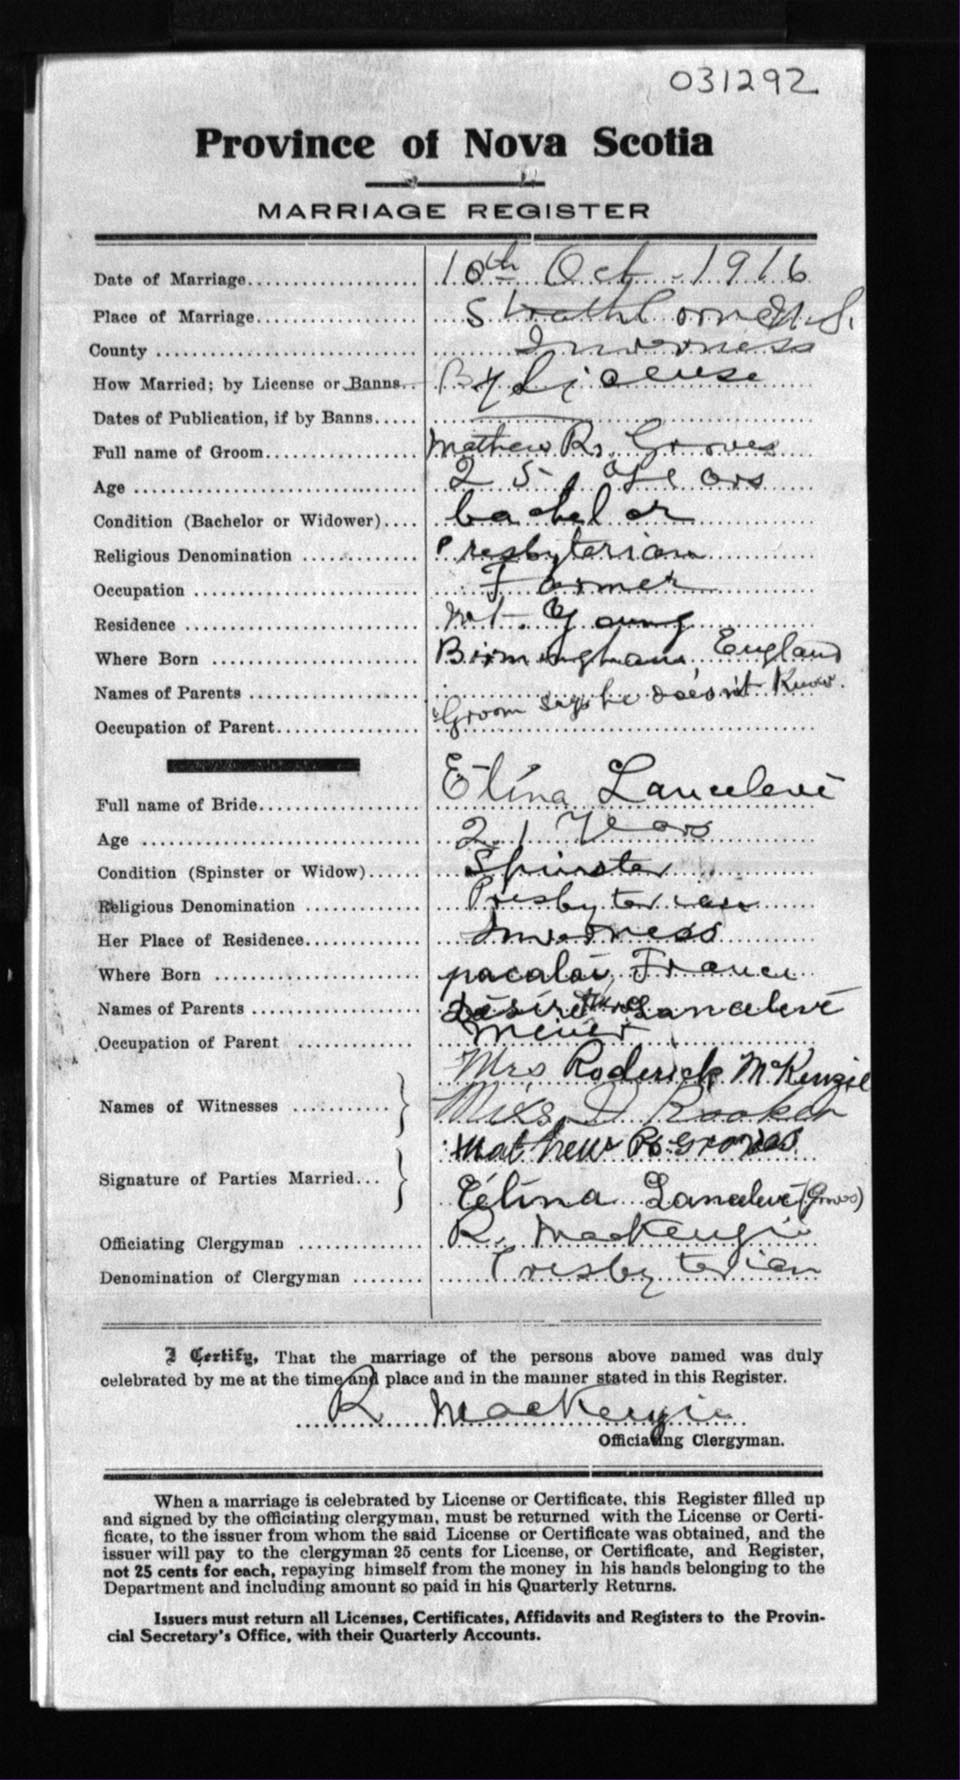 031292
Province of Nova Scotia
MARRIAGE REGISTER
Date of Marriage.................... 10th Oct. 1916
Place of Marriage................... Strathlorne N.S.
County .............................. Inverness
How Married; by License or Banns.. By License
Dates of Publication, if by Banns.....
Full name of Groom.................. Mathew R. Groves
Age .................................. 25 Years
Condition (Bachelor or Widower).... bachelor
Religious Denomination ............ Presbyterian
Occupation .......................... Farmer
Residence ........................... Mt. Young
Where Born ......................... Birmingham, England
Names of Parents ................... Groom says he doesn't Know.
Occupation of Parent.................
Full name of Bride................... Elina Lancelevé
Age ................................. 21 Years
Condition (Spinster or Widow)...... Spinster
Religious Denomination ............. Presbyterian
Her Place of Residence.............. Inverness
Where Born ......................... France
Names of Parents ................... Désiré Lancelevé
Occupation of Parent ............. Miner
Mrs Roderick McKenzie
Names of Witnesses ........... Miss
Mathew R. Groves
Signature of Parties Married...
Élina Lancelevé (Groves)
Officiating Clergyman ............. R. MacKenzie
Denomination of Clergyman ........ Presbyterian
I Certify, That the marriage of the persons above named was duly
celebrated by me at the time and place and in the manner stated in this Register.
R MacKenzie
Officiating Clergyman.
When a marriage is celebrated by License or Certificate, this Register filled up
and signed by the officiating clergyman, must be returned with the License or Certi-
ficate, to the issuer from whom the said License or Certificate was obtained, and the
issuer will pay to the clergyman 25 cents for License, or Certificate, and Register,
not 25 cents for each, repaying himself from the money in his hands belonging to the
Department and including amount so paid in his Quarterly Returns.
Issuers must return all Licenses, Certificates, Affidavits and Registers to the Provin-
cial Secretary's Office, with their Quarterly Accounts.